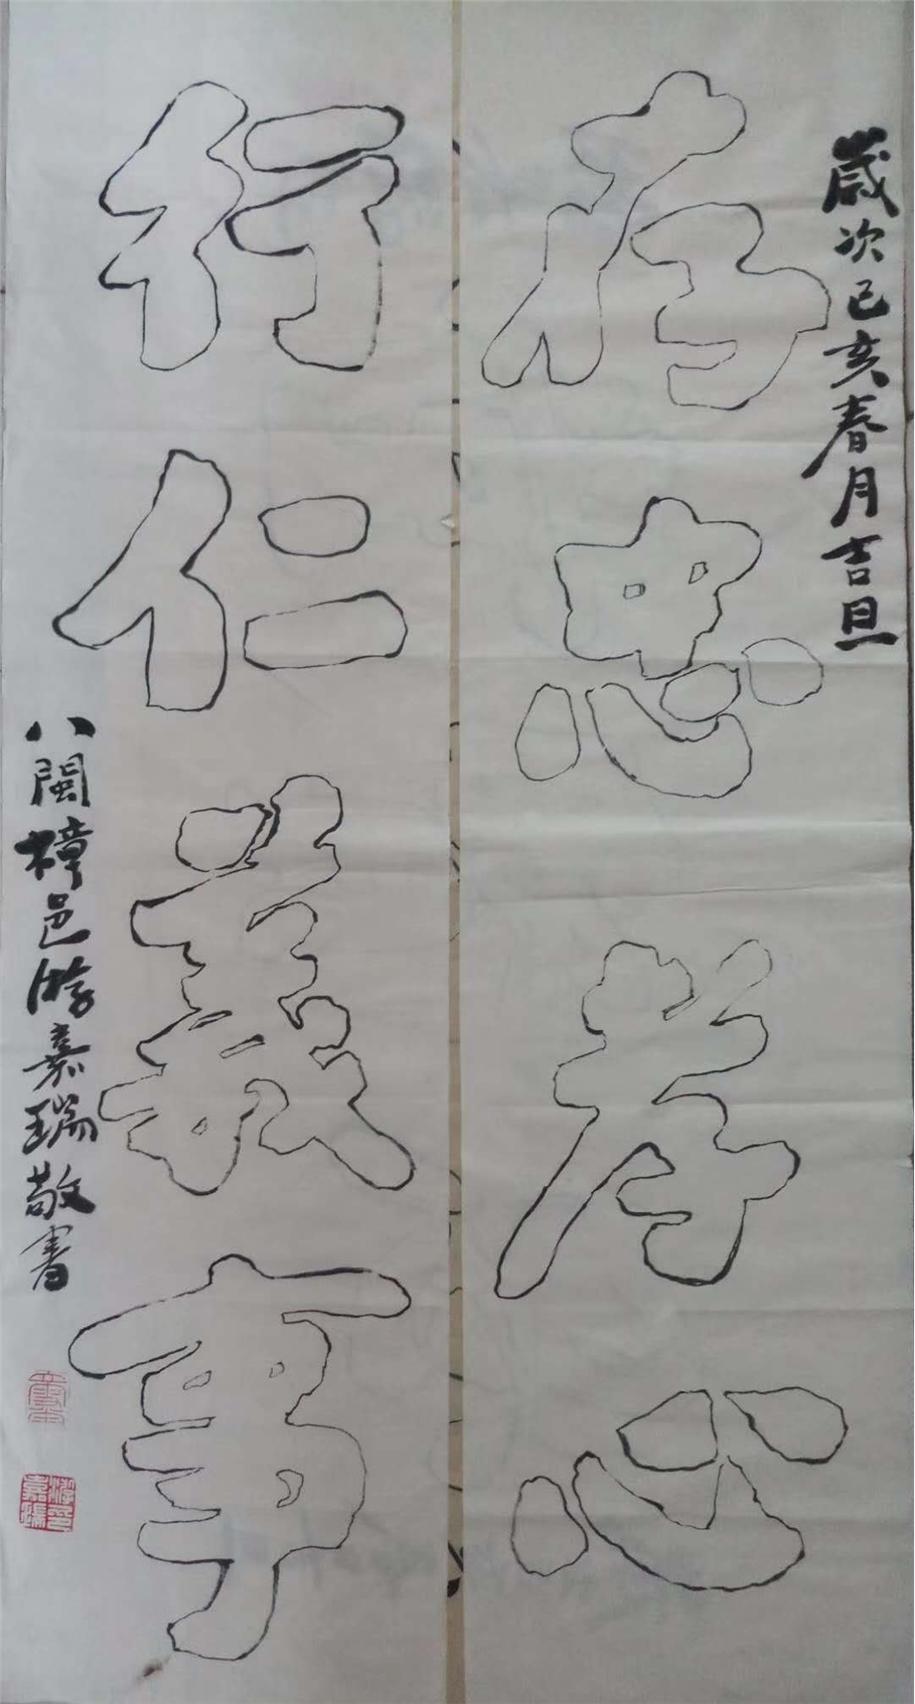 歲次己亥春月吉旦
存忠孝心
行仁義事
八閩樟邑游嘉瑞敬書